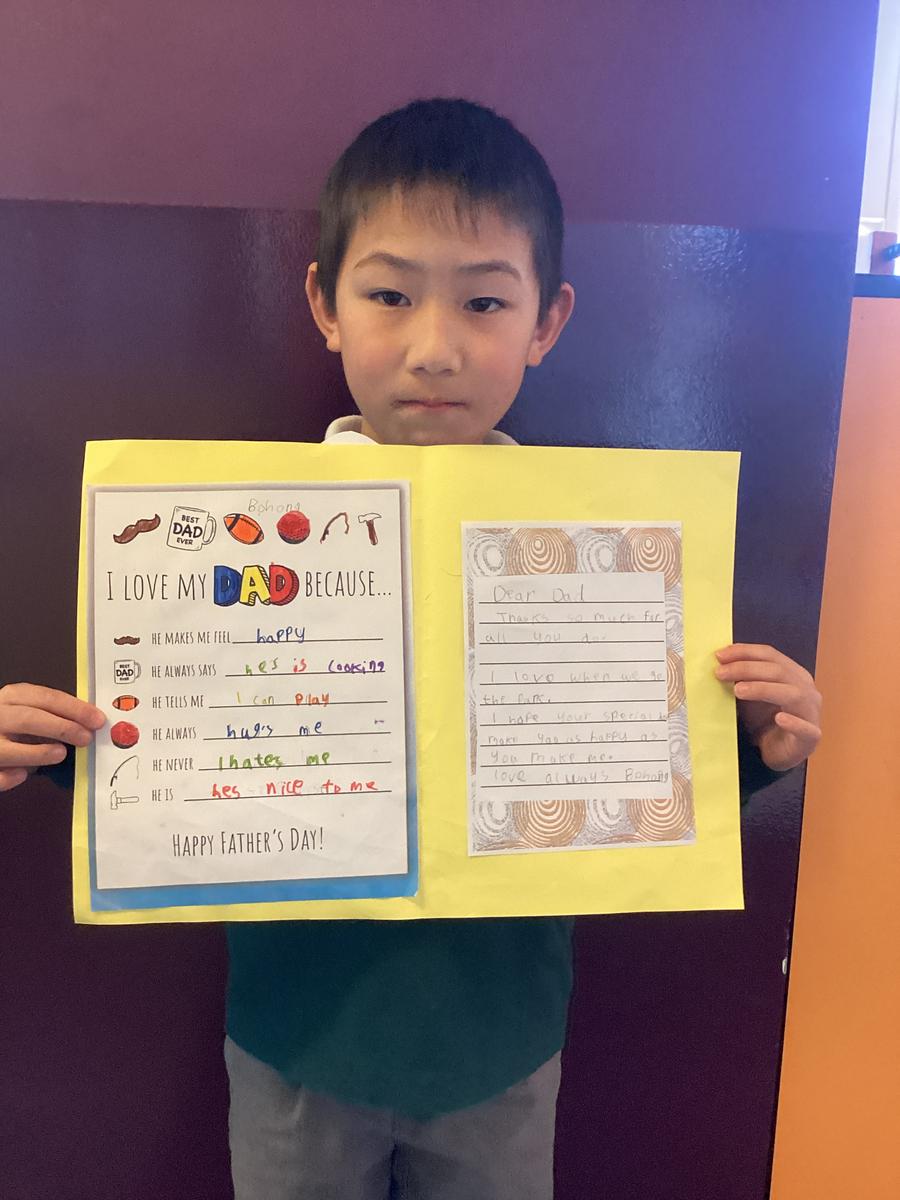 Bohong
BEST
DAD
EVER
I LOVE MY DAD BECAUSE...
HE MAKES ME FEEL happy
BEST
DAD
EVER
HE ALWAYS SAYS hes is cooking
HE TELLS ME I can play
HE ALWAYS hugs me
HE NEVER Ihates me
HE IS hes nice to me
HAPPY FATHER'S DAY!
Dear Dad
Thanks so much for
all you do.
I love when we go
the Park.
I hope your special
make you as happy as
you make me.
love always Bohong